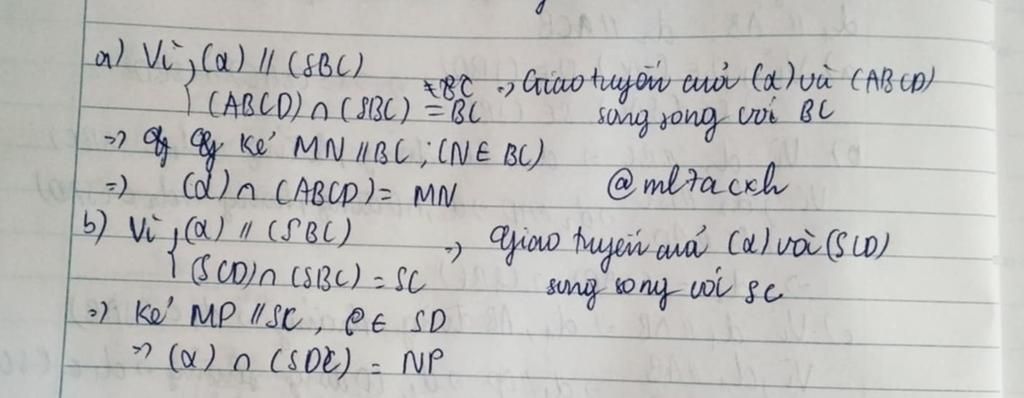 a) Vì {(α) // (SBC)
(ABCD) ∩ (SBC) = BC => Giao tuyến của (α) và (ABCD)
song song với BC
=> Kẻ MN // BC ; (N ∈ BC)
=> (α) ∩ (ABCD) = MN @ml7ackh
b) Vì {(α) // (SBC) => Giao tuyến của (α) và (SCD)
(SCD) ∩ (SBC) = SC song song với SC
=> Kẻ MP // SC, P ∈ SD
=> (α) ∩ (SDC) = NP